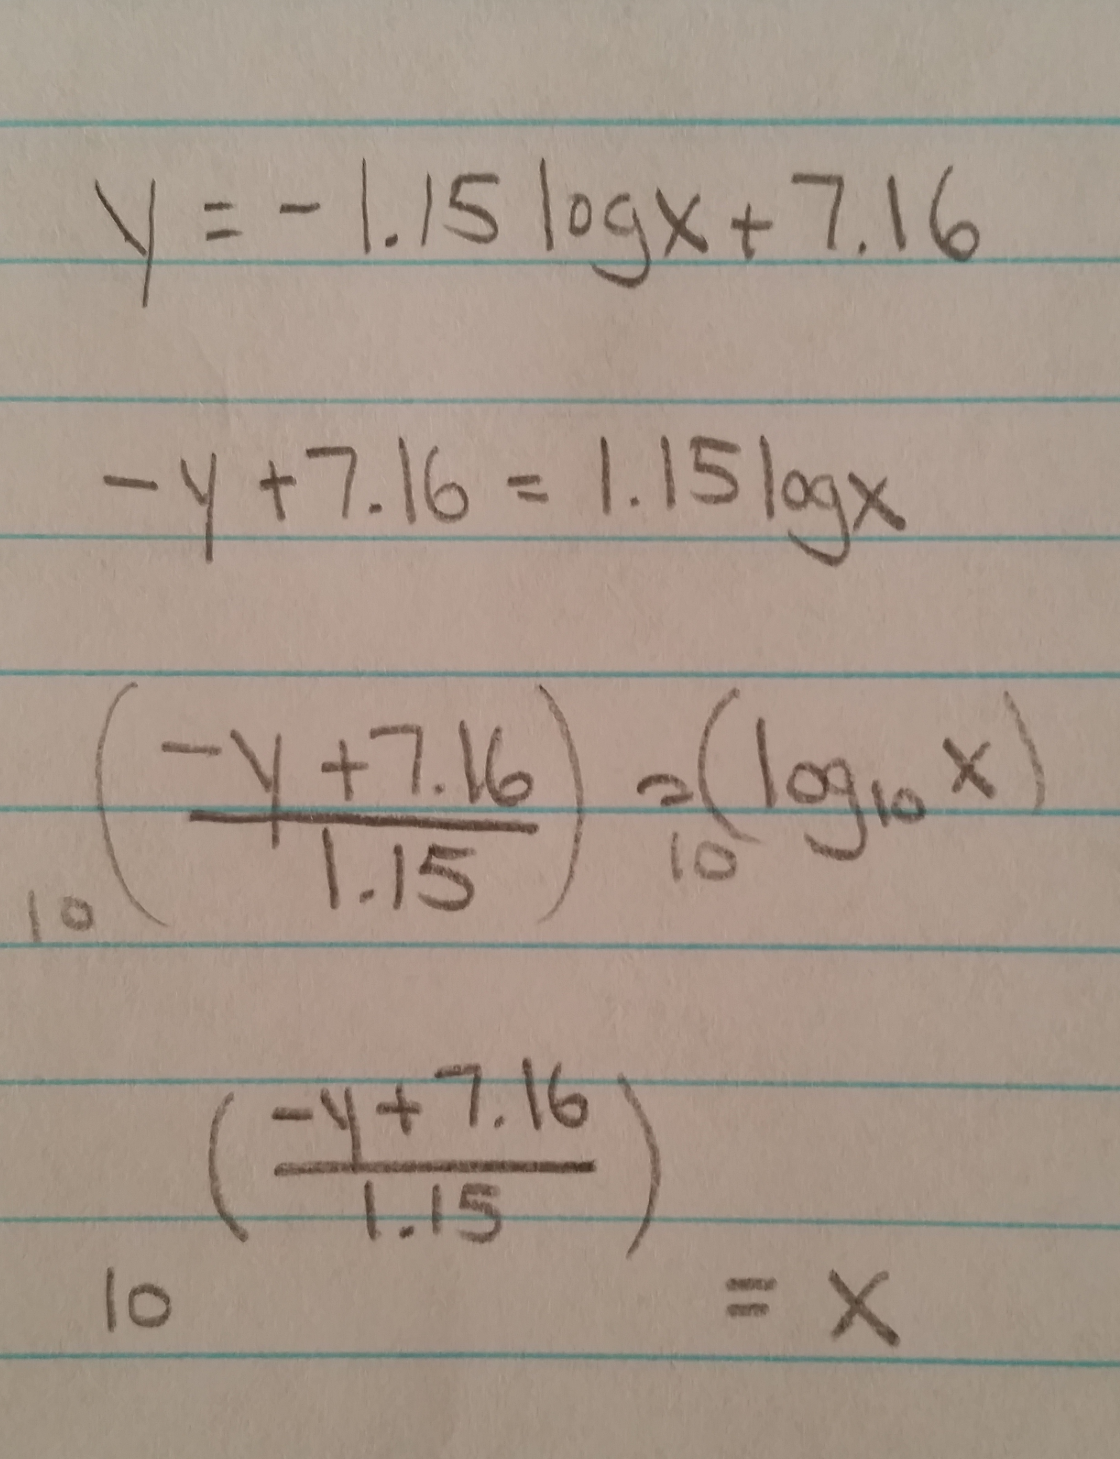 y = -1.15 logx + 7.16
-y + 7.16 = 1.15 logx
10^(\frac{-y + 7.16}{1.15}) = 10^(log₁₀ x)
10^(\frac{-y + 7.16}{1.15}) = x